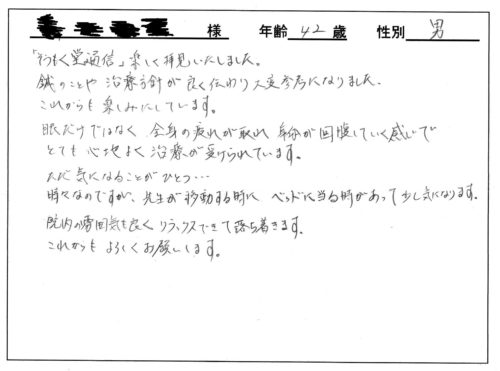 様 年齢 42 歳 性別 男
「そうもく堂通信」楽しく拝見いたしました。
鍼のことや 治療方針が良く伝わり大変参考になりました。
これからも楽しみにしています。
眼だけではなく 全身の疲れが取れ 身体が回復していく感じで
とても心地よく治療が受けられています。
ただ気になることがひとつ…
時々なのですが、先生が移動する時に ベッドに当る時があって少し気になります。
院内の雰囲気も良く リラックスできて落ち着きます。
これからもよろしくお願いします。